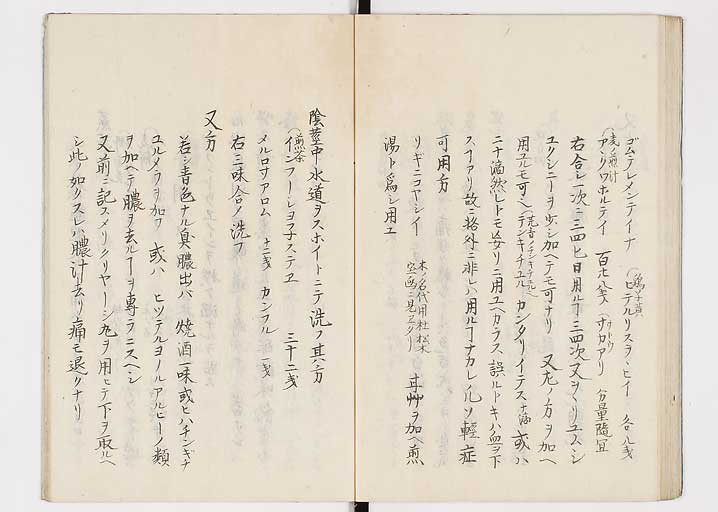 ゴムテレメンテイナ　（鶏子黄）ヒテルリスラヽヒイ　各八戋
（麦ノ煎汁）アンクワホルテイ　百廿八戋　（サトウ）すカアリ　分量随宜
右合シ一次ニ三四匕日用ルヿ三四次又ヲヽリユムシ
ユクシニーヲ少シ加ヘテモ可ナリ　又左ノ方ヲ加ヘ
用ユルモ可ヘ　テンキチユル　カンタリイテス　十滴　或ハ
二十滴然レトモ妄リニ用ユヘカラス誤ルトキハ血ヲ下
スイアリ故ニ格外ニ非レハ用ルヿナカレ凡ソ軽症
可用方
リギニコヤシイ　木ノ名代用杜松木　甘艸ヲ加ヘ煎
湯ト為シ用ユ
陰茎中水道ヲスホイトニテ洗フ其方
（煎茶）インフーシヨ子ステヱ　三十二戋
メルロサアロム　十二戋　カンフル　一戋
右三味合ノ洗フ
又方
若シ青色ナル臭膿出ハ　焼酒一味或ヒハチンキナ
ユルメラヲ加フ　或ハ　ヒツテルヨノルアルヒーノ類
ヲ加ヘテ膿ヲ去ルヿヲ専ラニスヘシ
又前ニ記スメリクリヤーシ丸ヲ用ヒテ下ヲ取ルヘ
シ此ノ如クスレハ膿汁去リ痛モ退クナリ